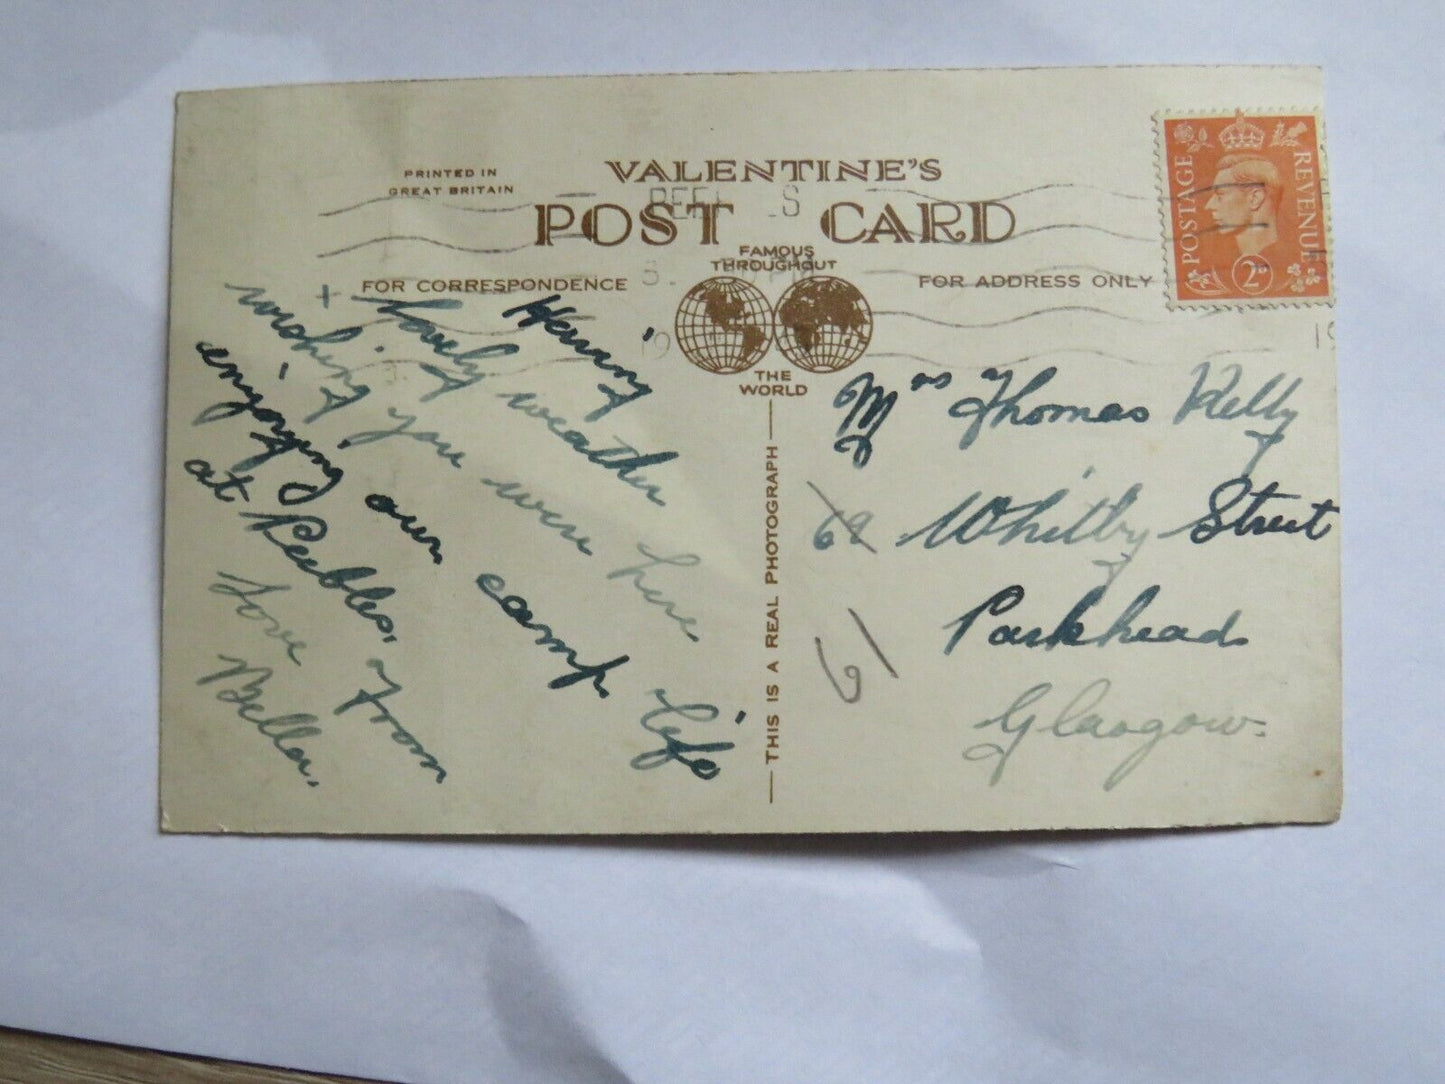 PRINTED IN
GREAT BRITAIN
VALENTINE'S
POST CARD
FAMOUS
THROUGHOUT
THE
WORLD
FOR CORRESPONDENCE
FOR ADDRESS ONLY
THIS IS A REAL PHOTOGRAPH
POSTAGE
REVENUE
2D
Having
Lovely weather
+ wishing you were here
enjoying our camp life
at Peebles, from
Love
Bella.
Mrs Thomas Kelly
69 Whitby Street
Parkhead
Glasgow.
19